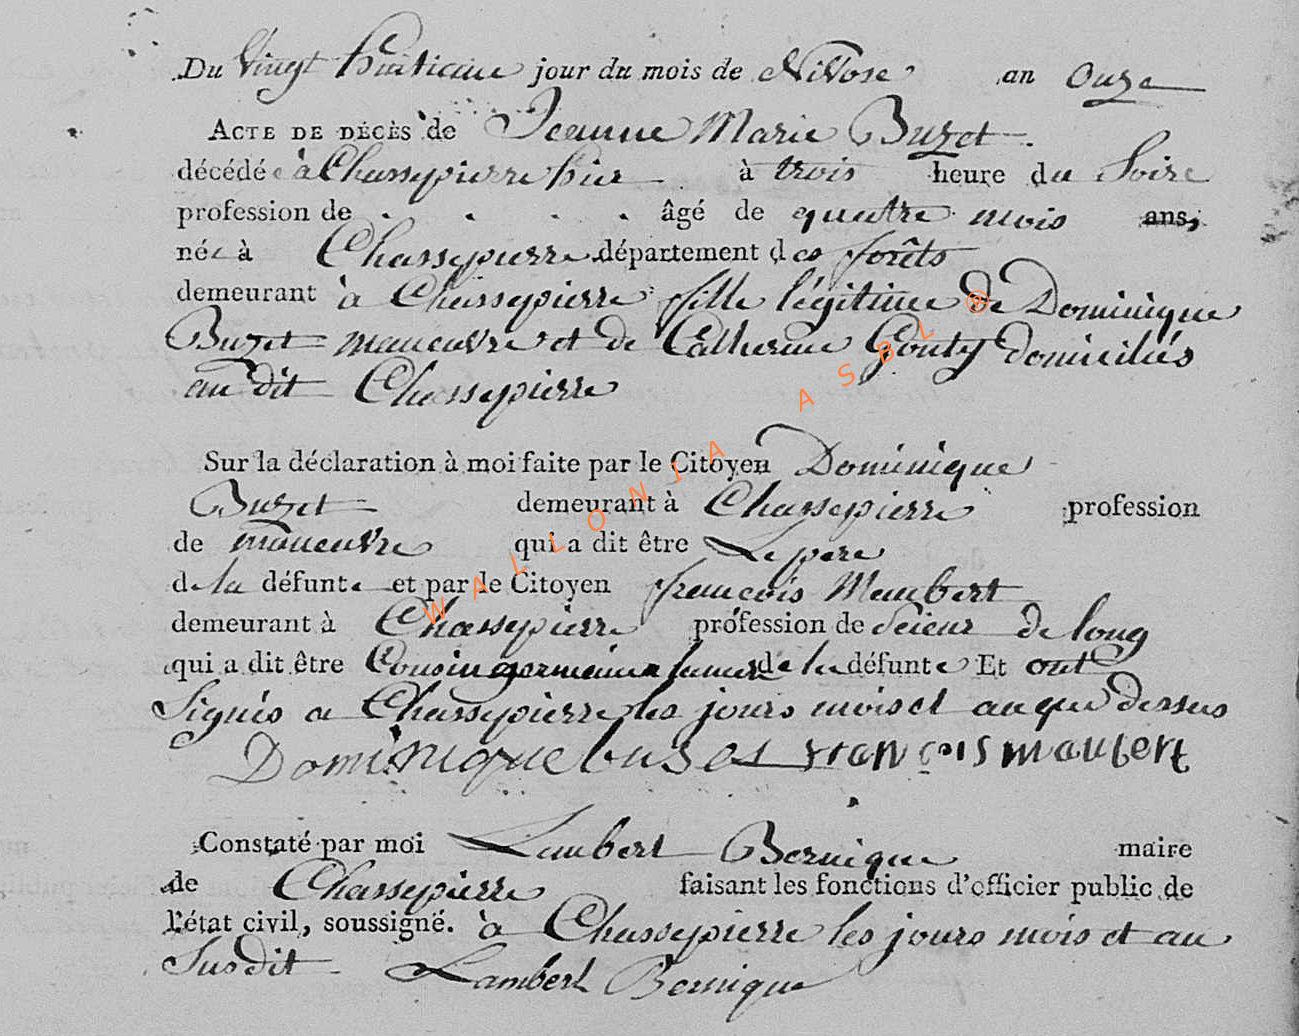 Du Vingt huiticme jour du mois de Nivose an onze
ACTE DE DÉCÈS de Jeanne Marie Buzet.
décédée à Chassepierre hier à trois heure du Soire
profession de . . . . âgé de quatre mois ans,
née à Chassepierre département des forêts
demeurant à Chassepierre fille légitime de Dominique
Buzet maneuvre et de Catherine Gouty domiciliés
au dit Chassepierre
Sur la déclaration à moi faite par le Citoyen Dominique
Buzet demeurant à Chassepierre profession
de maneuvre qui a dit être Le pere
de la défunte et par le Citoyen françois Maubert
demeurant à Chassepierre profession de scieur de long
qui a dit être Cousin germain de la défunte Et ont
Signés a Chassepierre les jours mois et an que dessus
Dominique buset françois maubert
Constaté par moi Lambert Bernique maire
de Chassepierre faisant les fonctions d'officier public de
l'état civil, soussigné. à Chassepierre les jours mois et an
Susdit Lambert Bernique
WALLONIA ASBL ®